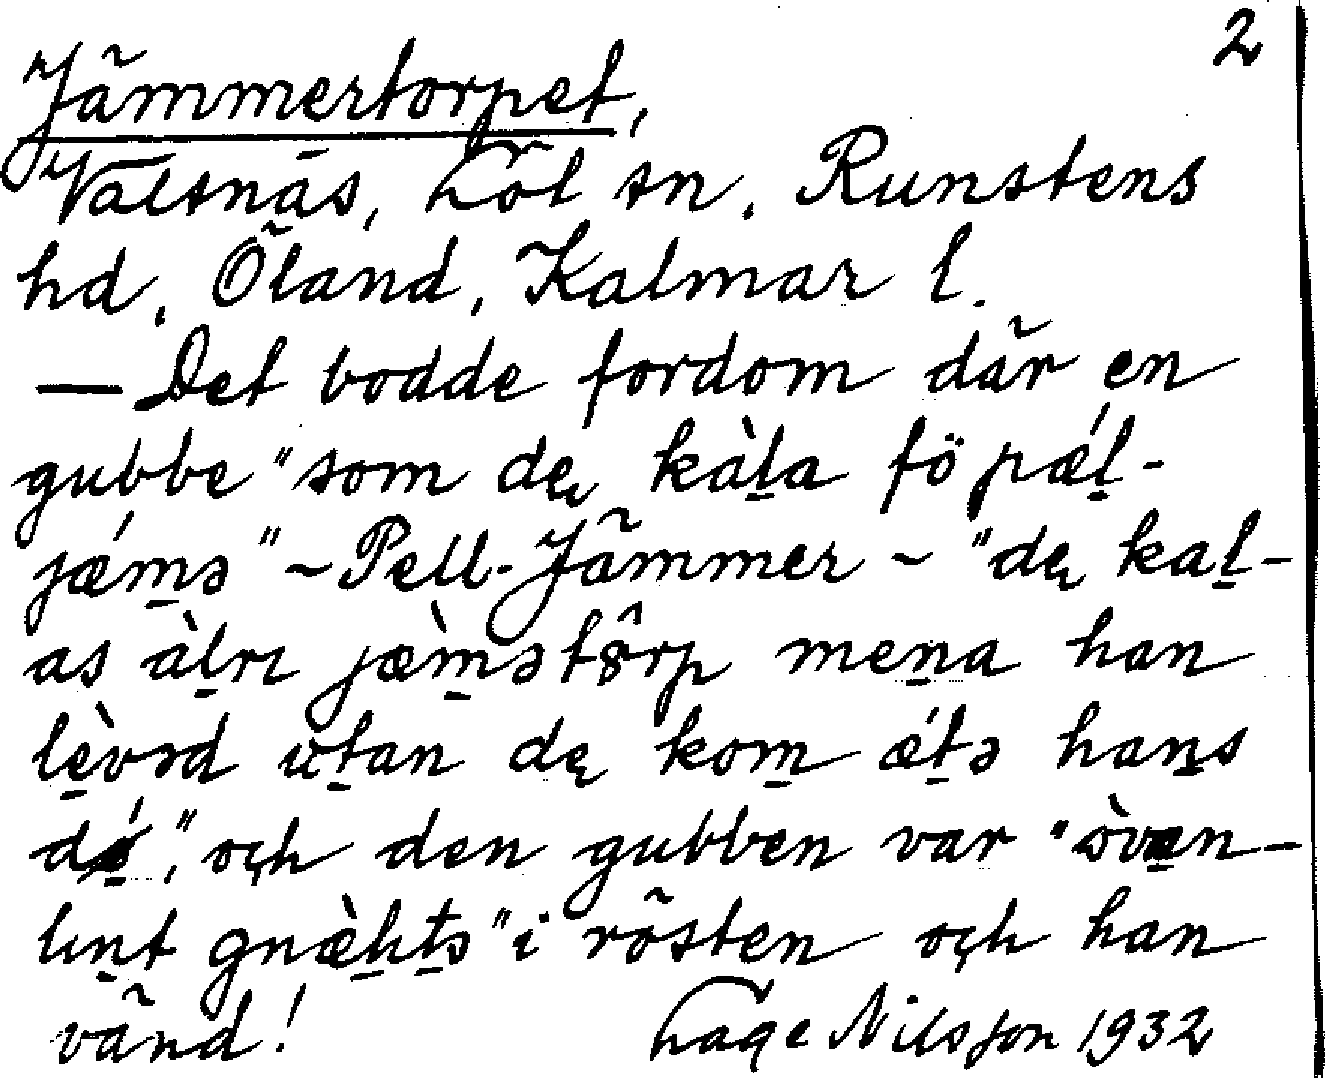 2
Jämmertorpet,
Valsnäs, Löt sn. Runstens
hd. Öland, Kalmar l.
— Det bodde fordom där en
gubbe "som dęɩ kàl̠a fö pǽl̠-
jǽm̠ə" ~ Pell-Jämmer ~ "dęɩ kal̠-
as àl̠rɩ jæ̀m̠ətôrp men̠a han
lè̠vəd ut̠an dęɩ kom̠ ǽt̠ə han̠s
" och den gubben var
lɩn̠t gnæ̀h̠t̠s" i rösten och han
vänd! Hage Nilsson 1932